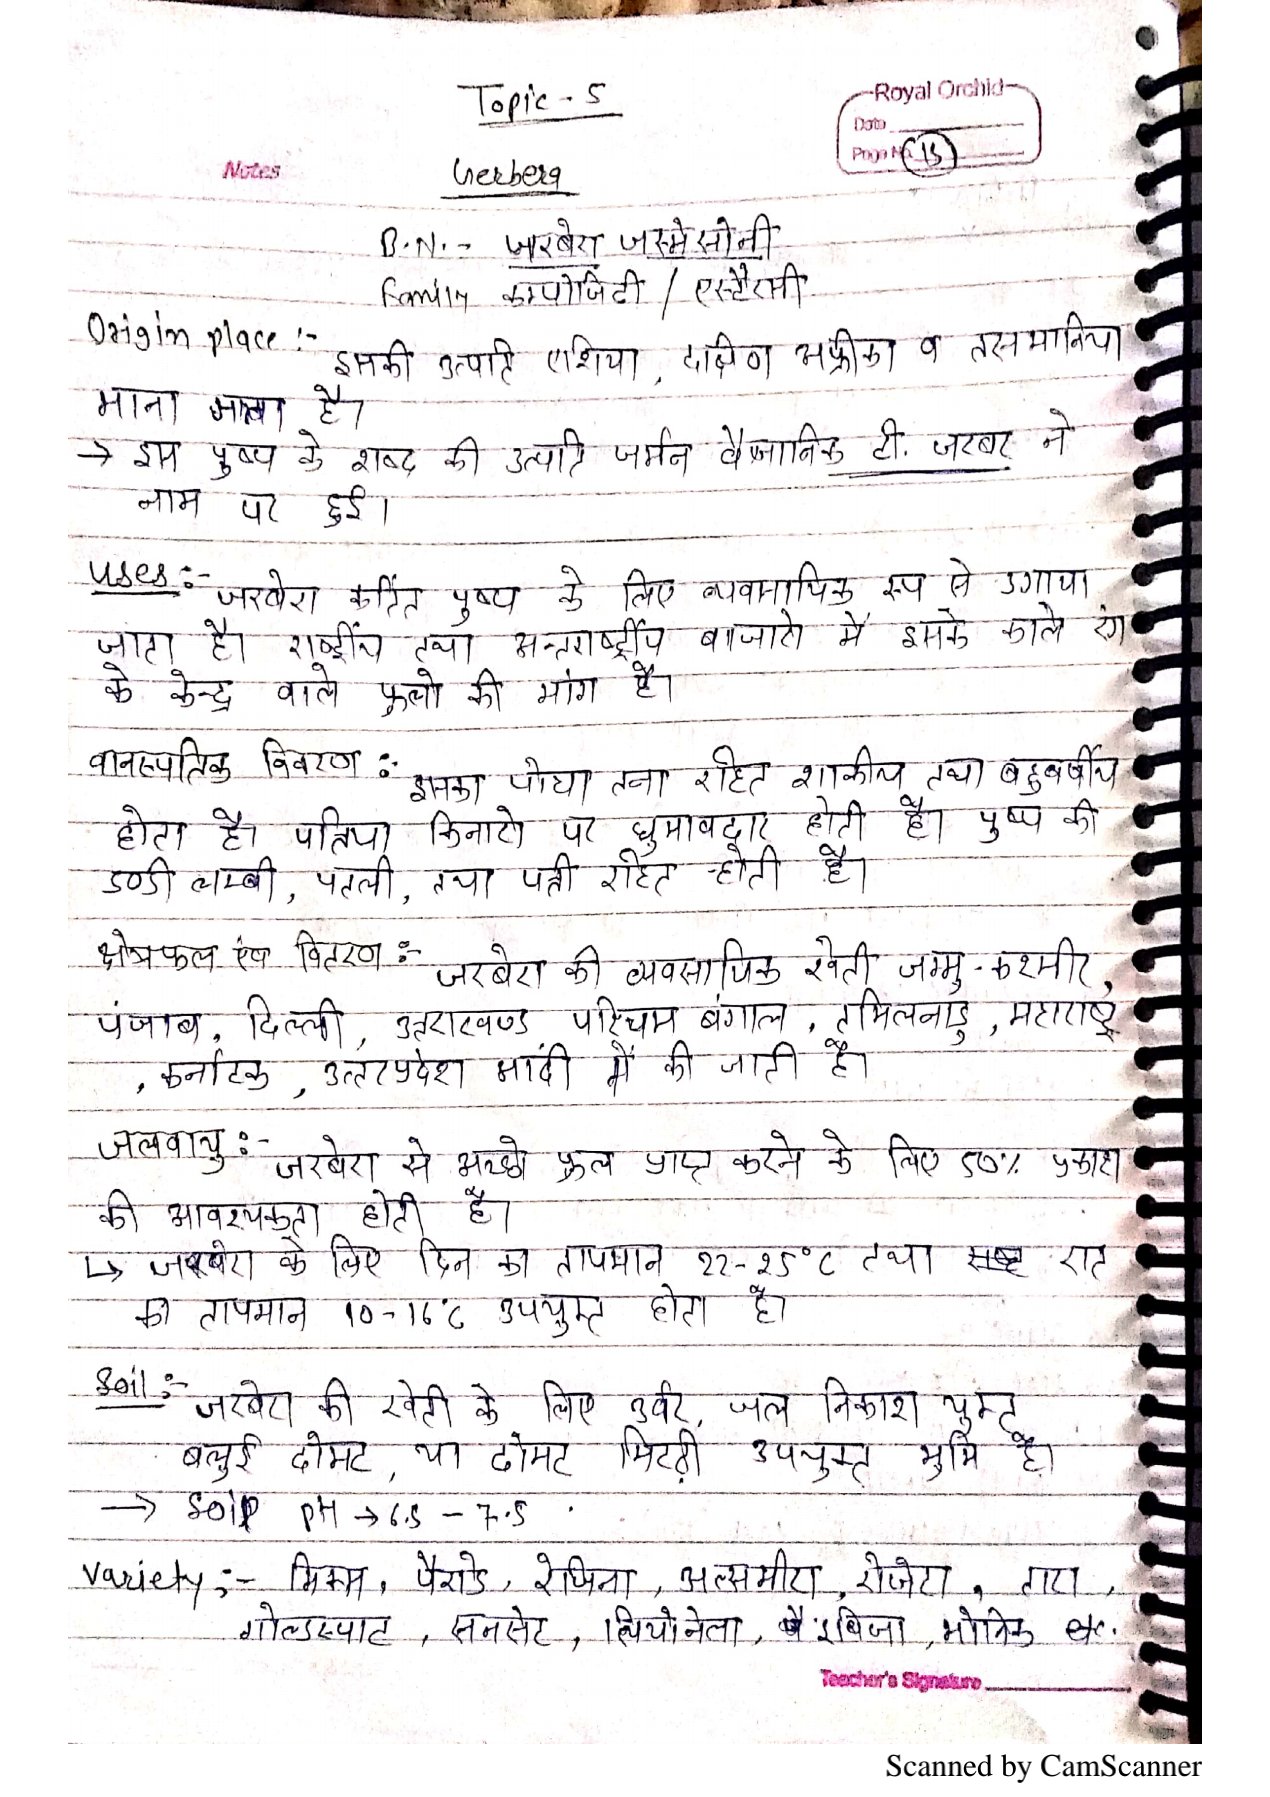 Topic - 5
Royal Orchid
Date
Page No. 15
Notes
Gerbera
B.N. - जरबेरा जस्मेसोनी
Family कम्पोजिटी / एस्टैरेसी
Origin place :- इसकी उत्पति एशिया, दक्षिण अफ्रीका व तस्मानिया
माना जाता है।
→ इस पुष्प के शब्द की उत्पति जर्मन वैज्ञानिक टी. जरबर ने
नाम पर हुई।
Uses :- जरबेरा कर्तित पुष्प के लिए व्यवसायिक रूप से उगाया
जाता है। राष्ट्रीय तथा अन्तर्राष्ट्रीय बाजारो में इसके काले रंग
के केन्द्र वाले फुलो की मांग है।
वानस्पतिक विवरण :- इसका पोधा तना रहित शाकीय तथा बहुबर्षीय
होता है। पतिया किनारो पर घुमावदार होती है। पुष्प की
डण्डी लम्बी, पतली, तथा पत्ती रहित होती है।
क्षेत्रफल एंव वितरण :- जरबेरा की व्यवसायिक खेती जम्मु-कश्मीर,
पंजाब, दिल्ली, उत्तराखण्ड पश्चिम बंगाल, तमिलनाडु, महाराष्ट्र
, कर्नाटक, उत्तरप्रदेश आदी में की जाती है।
जलवायु :- जरबेरा से अच्छे फुल प्राप्त करने के लिए 50% प्रकाश
की आवश्यकता होती है।
↳ जरबेरा के लिए दिन का तापमान 22-25°C तथा रात
का तापमान 10-16°C उपयुक्त होता है।
Soil :- जरबेरा की खेती के लिए उर्वर, जल निकाश युक्त
बलुई दोमट, या दोमट मिटटी उपयुक्त भुमि है।
→ soil pH → 6.5 - 7.5
Variety :- मिक्स, पैराडे, रेजिना, अल्समीरा, रोजेटा, तारा,
गोल्डस्पाट, सनसेट, लियोनेला, मोनिक etc.
Teacher's Signature
Scanned by CamScanner